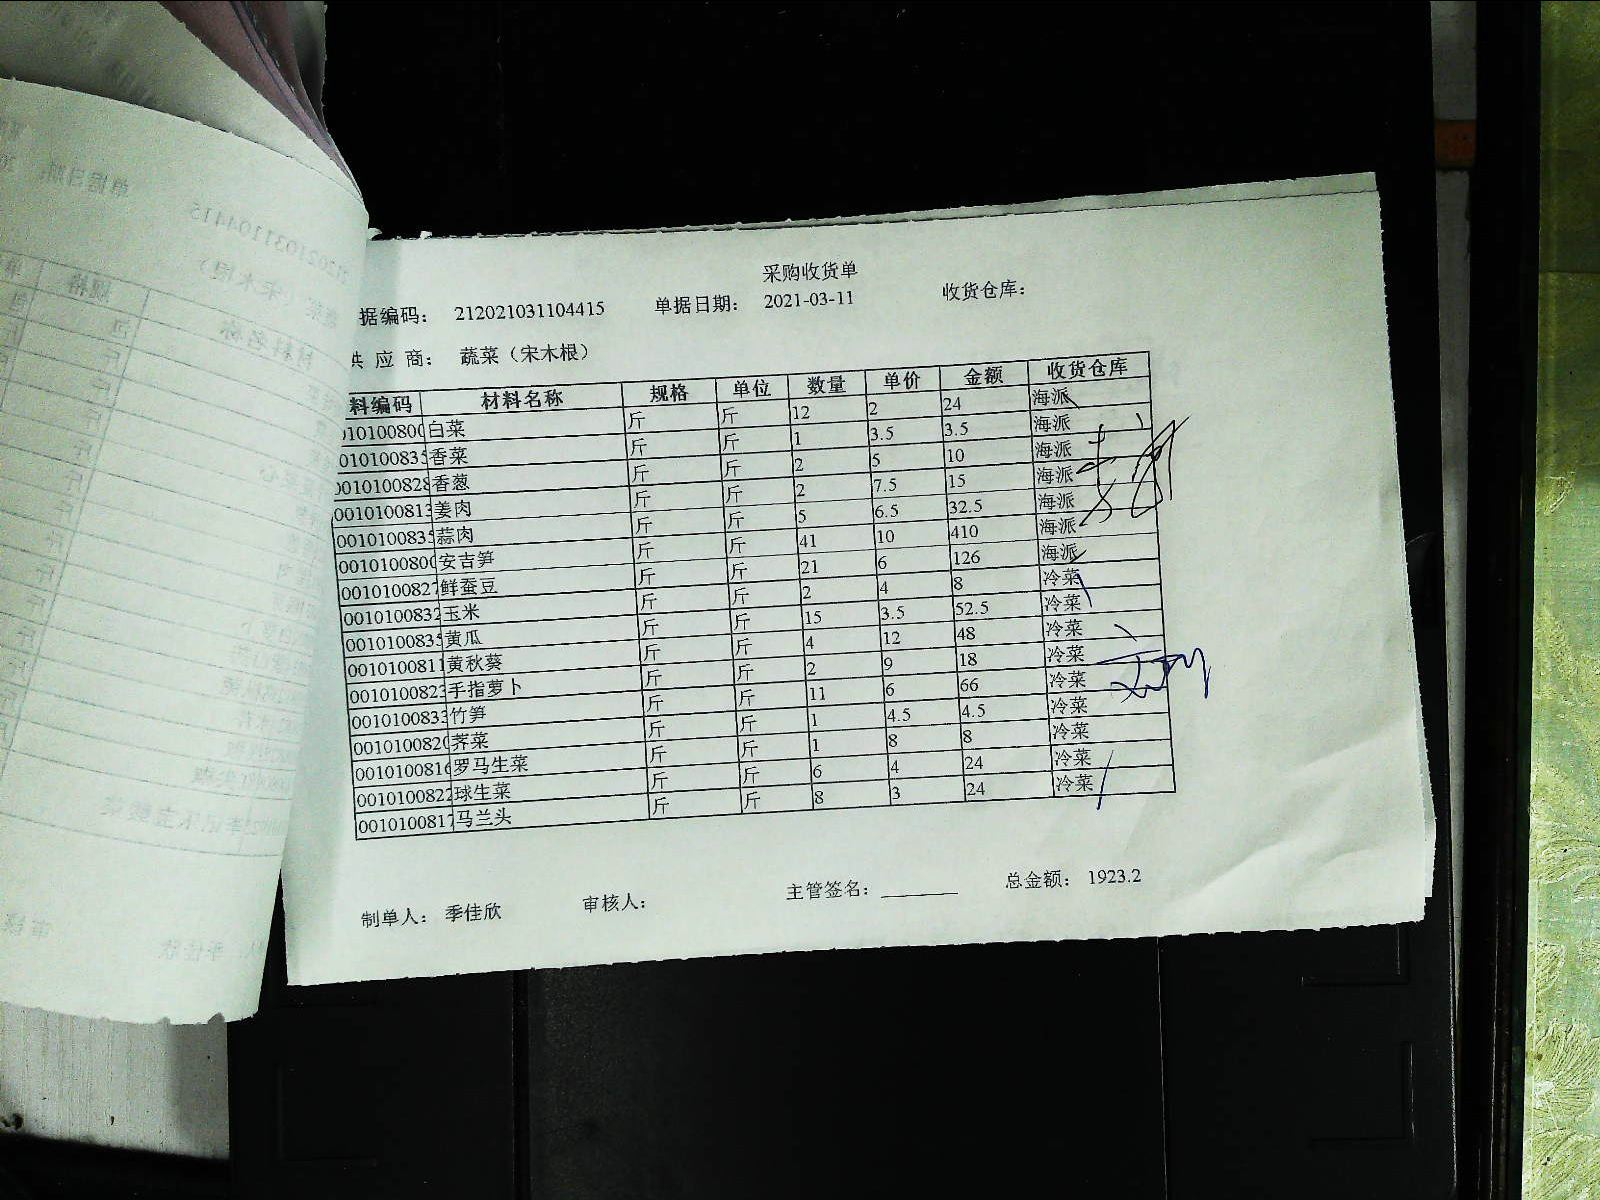 采购收货单
据编码： 212021031104415 单据日期： 2021-03-11 收货仓库：
供 应 商： 蔬菜（宋木根）
料编码 材料名称 规格 单位 数量 单价 金额 收货仓库
10100800 白菜 斤 斤 12 2 24 海派
010100835 香菜 斤 斤 1 3.5 3.5 海派
0010100828 香葱 斤 斤 2 5 10 海派
0010100813 姜肉 斤 斤 2 7.5 15 海派
0010100835 蒜肉 斤 斤 5 6.5 32.5 海派
0010100800 安吉笋 斤 斤 41 10 410 海派
0010100827 鲜蚕豆 斤 斤 21 6 126 海派
0010100832 玉米 斤 斤 2 4 8 冷菜
0010100835 黄瓜 斤 斤 15 3.5 52.5 冷菜
0010100811 黄秋葵 斤 斤 4 12 48 冷菜
0010100823 手指萝卜 斤 斤 2 9 18 冷菜
0010100833 竹笋 斤 斤 11 6 66 冷菜
0010100820 荠菜 斤 斤 1 4.5 4.5 冷菜
0010100816 罗马生菜 斤 斤 1 8 8 冷菜
0010100822 球生菜 斤 斤 6 4 24 冷菜
0010100817 马兰头 斤 斤 8 3 24 冷菜
制单人： 季佳欣 审核人： 主管签名： 总金额： 1923.2